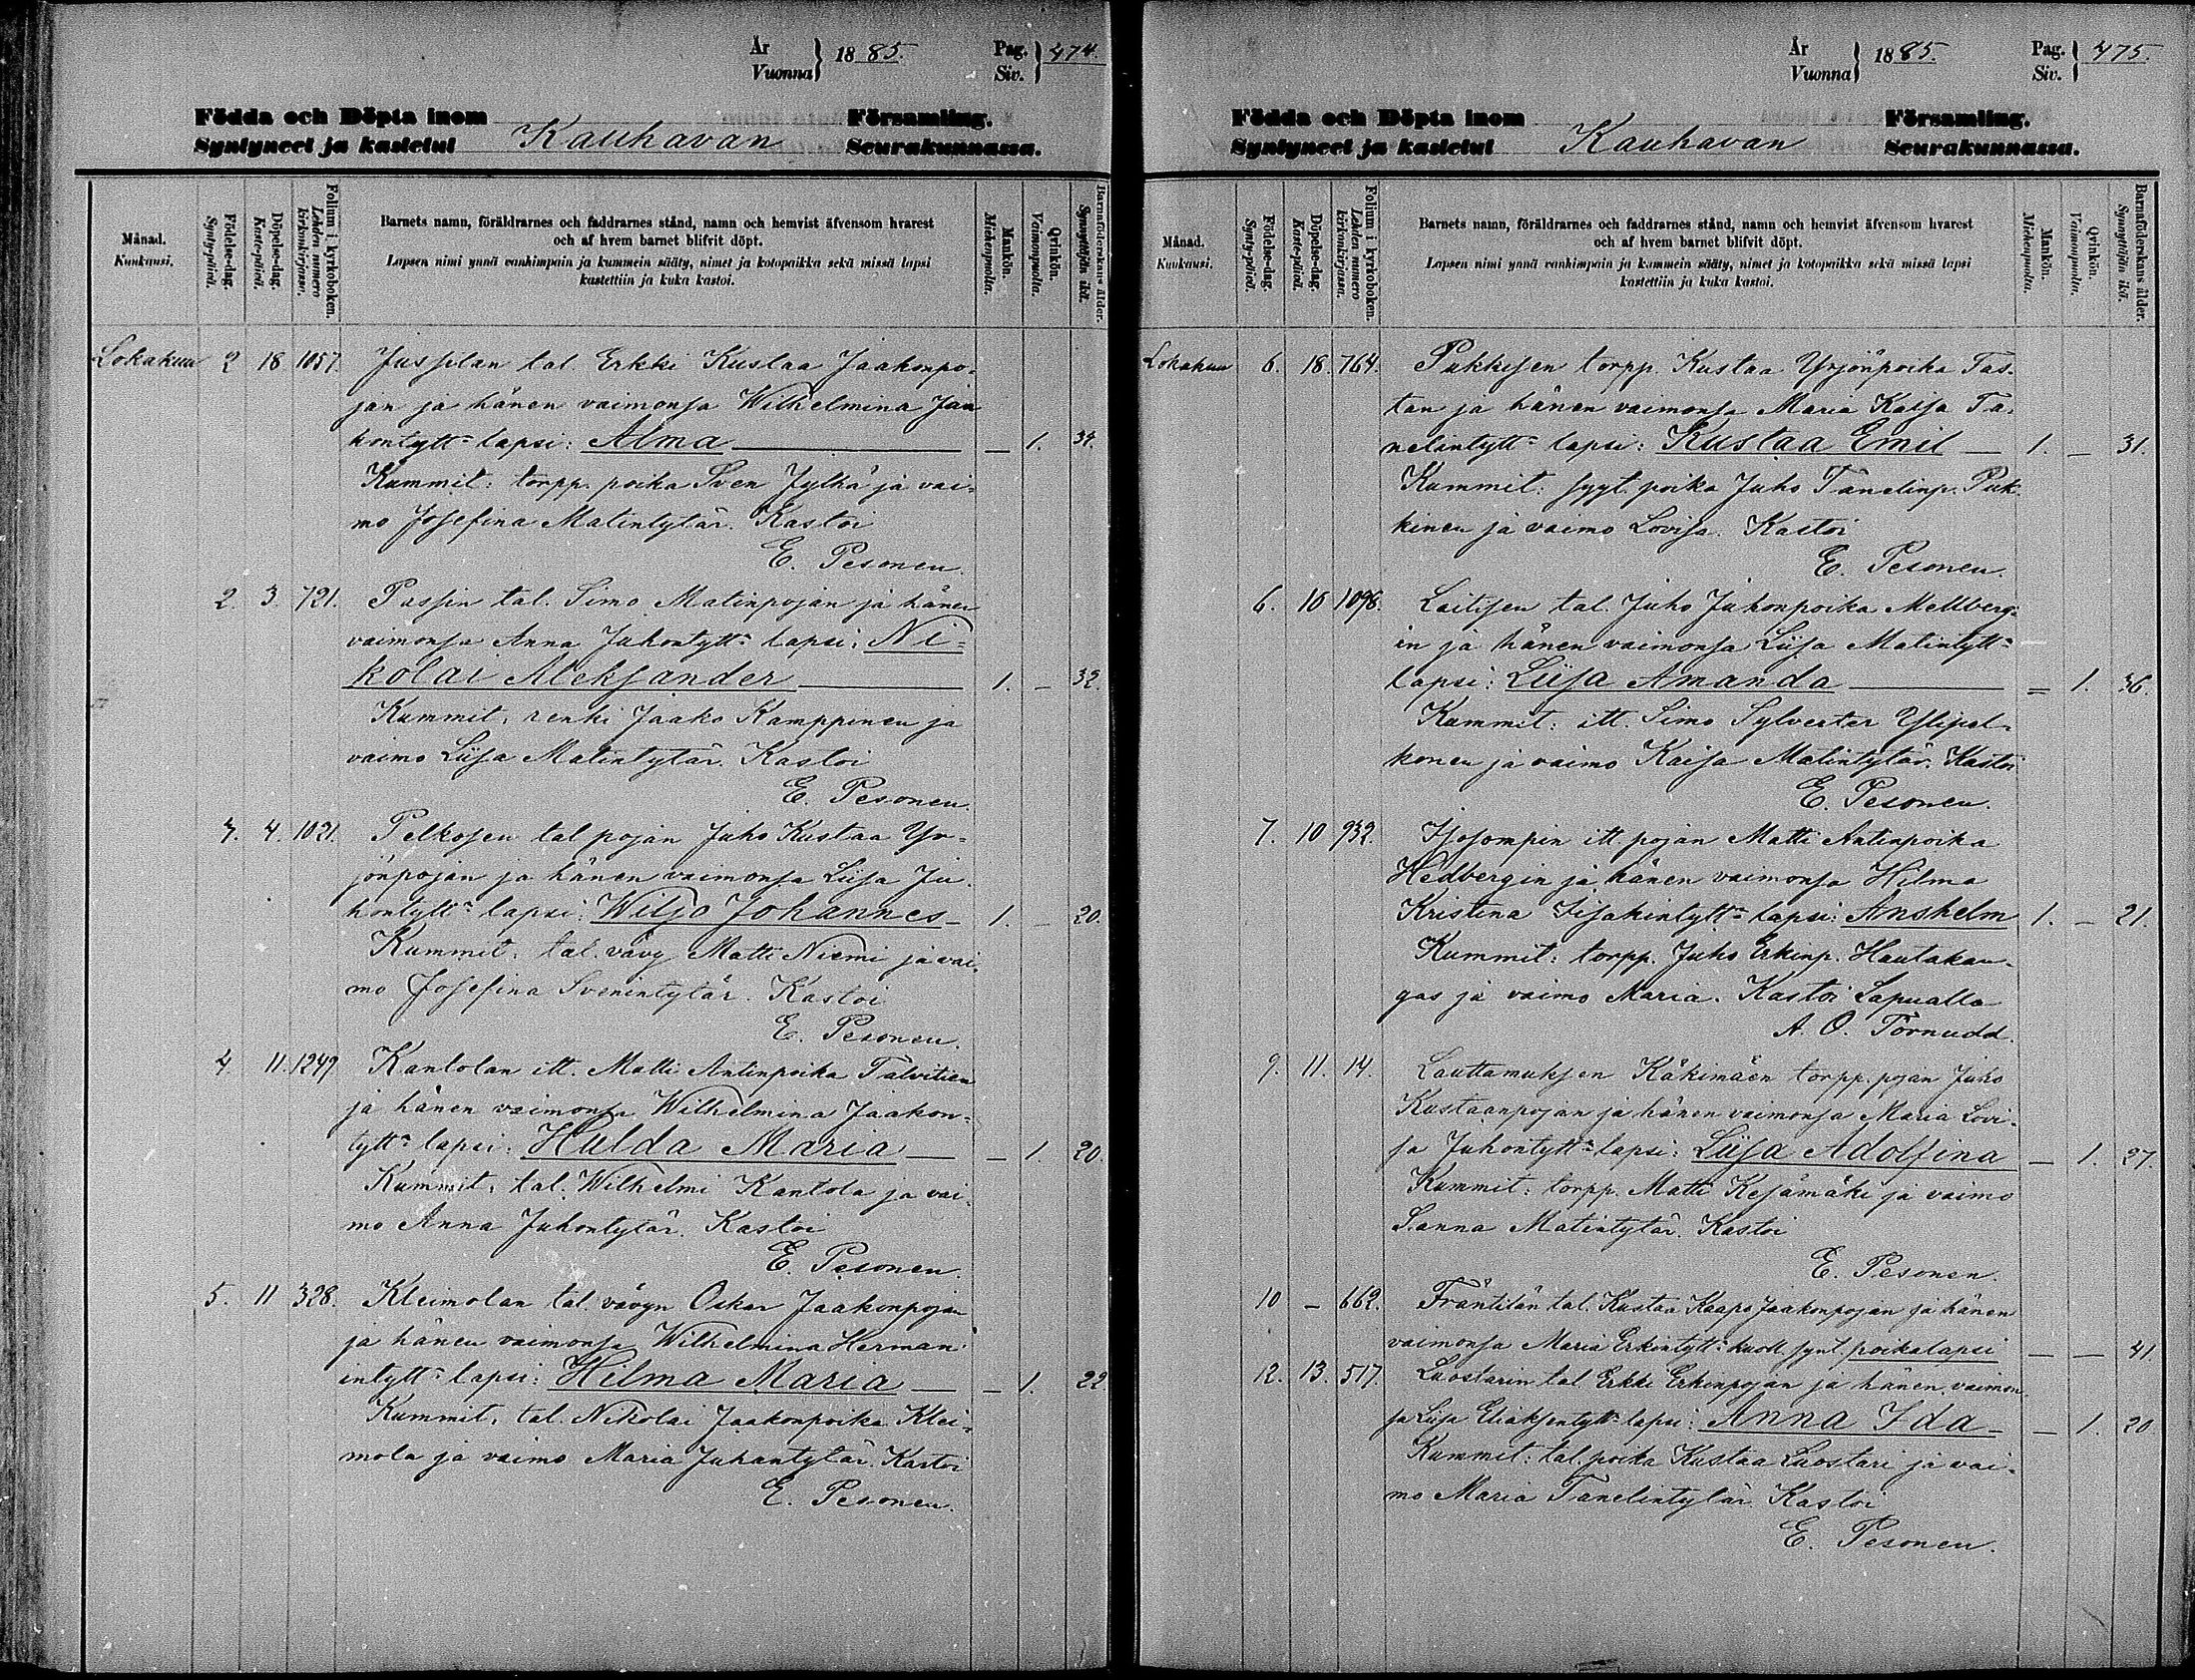 År
Vuonna
1885.
Pag.
Siv.
474.
Födda och Döpta inom
Syntyneet ja kastetut
Kauhavan
Församling.
Seurakunnassa.
Månad.
Kuukausi.
Födelse-dag.
Synty-päivä.
Döpelse-dag.
Kaste-päivä.
Folium i kyrkoboken.
Lehden numero
kirkonkirjassa.
Barnets namn, föräldrarnes och faddrarnes stånd, namn och hemvist äfvensom hvarest
och af hvem barnet blifvit döpt.
Lapsen nimi ynnä vanhimpain ja kummein sääty, nimet ja kotopaikka sekä missä lapsi
kastettiin ja kuka kastoi.
Mankön.
Miehenpuolta.
Qvinkön.
Vaimonpuolta.
Barnaföderskans ålder.
Synnyttäjän ikä.
Lokakuu 2 18 1057. Jussilan tal. Erkki Kustaa Jaakonpo-
jan ja hänen vaimonsa Wilhelmina Jaa
kontytt= lapsi: Alma — 1. 34.
Kummit: torpp. poika Sven Jylhä ja vai-
mo Josefina Matintytär. Kastoi
E. Pesonen.
2. 3. 721. Passin tal. Simo Matinpojan ja hänen
vaimonsa Anna Juhontytt= lapsi: Ni=
kolai Aleksander 1. — 32.
Kummit: renki Jaako Kamppinen ja
vaimo Liisa Matintytär. Kastoi
E. Pesonen.
3. 4. 1021. Pelkosen tal pojan Juho Kustaa Yr-
jönpojan ja hänen vaimonsa Liisa Ju-
hontytt= lapsi: Wiljo Johannes 1. — 20.
Kummit: tal. vävy Matti Niemi ja vai-
mo Josefina Svenintytär. Kastoi
E. Pesonen.
4. 11. 1249 Kantolan itt. Matti Antinpoika Talvitien
ja hänen vaimonsa Wilhelmina Jaakon-
tytt= lapsi: Hulda Maria — 1 20.
Kummit: tal. Wilhelmi Kantola ja vai-
mo Anna Juhontytär. Kastoi
E. Pesonen.
5. 11 328. Kleimolan tal. vävyn Oskar Jaakonpojan
ja hänen vaimonsa Wilhelmina Herman-
intytt= lapsi: Hilma Maria — 1. 22
Kummit: tal. Nikolai Jaakonpoika Klei-
mola ja vaimo Maria Juhantytär. Kastoi
E. Pesonen.
År
Vuonna
1885.
Pag.
Siv.
475.
Födda och Döpta inom
Syntyneet ja kastetut
Kauhavan
Församling.
Seurakunnassa.
Månad.
Kuukausi.
Födelse-dag.
Synty-päivä.
Döpelse-dag.
Kaste-päivä.
Folium i kyrkoboken.
Lehden numero
kirkonkirjassa.
Barnets namn, föräldrarnes och faddrarnes stånd, namn och hemvist äfvensom hvarest
och af hvem barnet blifvit döpt.
Lapsen nimi ynnä vanhimpain ja kummein sääty, nimet ja kotopaikka sekä missä lapsi
kastettiin ja kuka kastoi.
Mankön.
Miehenpuolta.
Qvinkön.
Vaimonpuolta.
Barnaföderskans ålder.
Synnyttäjän ikä.
Lokakuu 6. 18. 764. Pukkisen torpp. Kustaa Yrjönpoika Tas-
tan ja hänen vaimonsa Maria Kaisa Ta-
nelintytt= lapsi: Kustaa Emil 1. — 31.
Kummit: syyt. poika Juho Tanelinp. Puk-
kinen ja vaimo Lovisa. Kastoi
E. Pesonen.
6. 10 1098. Laitisen tal. Juho Juhonpoika Mellberg-
in ja hänen vaimonsa Liisa Matintytt=
lapsi: Liisa Amanda — 1. 36.
Kummit: itt. Simo Sylvester Ylipel-
konen ja vaimo Kaisa Matintytär. Kastoi
E. Pesonen.
7. 10 932. Isosompin itt. pojan Matti Antinpoika
Hedbergin ja hänen vaimonsa Hilma
Kristina Iisakintytt= lapsi: Anshelm 1. — 21.
Kummit: torpp. Juho Erkinp. Hautakan-
gas ja vaimo Maria. Kastoi Lapualla
A. O. Törnudd.
9. 11. 14. Lauttamuksen Käkimäen torpp. pojan Juho
Kustaanpojan ja hänen vaimonsa Maria Lovi-
sa Juhontytt= lapsi: Liisa Adolfina — 1. 27.
Kummit: torpp. Matti Kesämäki ja vaimo
Sanna Matintytär. Kastoi
E. Pesonen.
10 — 662. Fräntilän tal. Kustaa Kaapo Jaakonpojan ja hänen
vaimonsa Maria Erkintytt= kuoll. synt. poikalapsi — — 41.
12. 13. 517. Luostarin tal. Erkki Erkinpojan ja hänen vaimon-
sa Liisa Eliaksentytt= lapsi: Anna Ida — 1. 20
Kummit: tal. poika Kustaa Luostari ja vai-
mo Maria Tanelintytär. Kastoi
E. Pesonen.